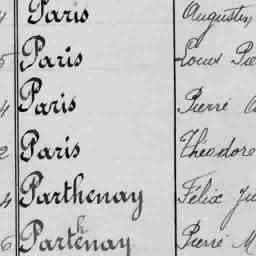 Paris Augustin
Paris Louis
Paris Pierre
2 Paris Théodore
4 Parthenay Félix
6 Parthenay Pierre M